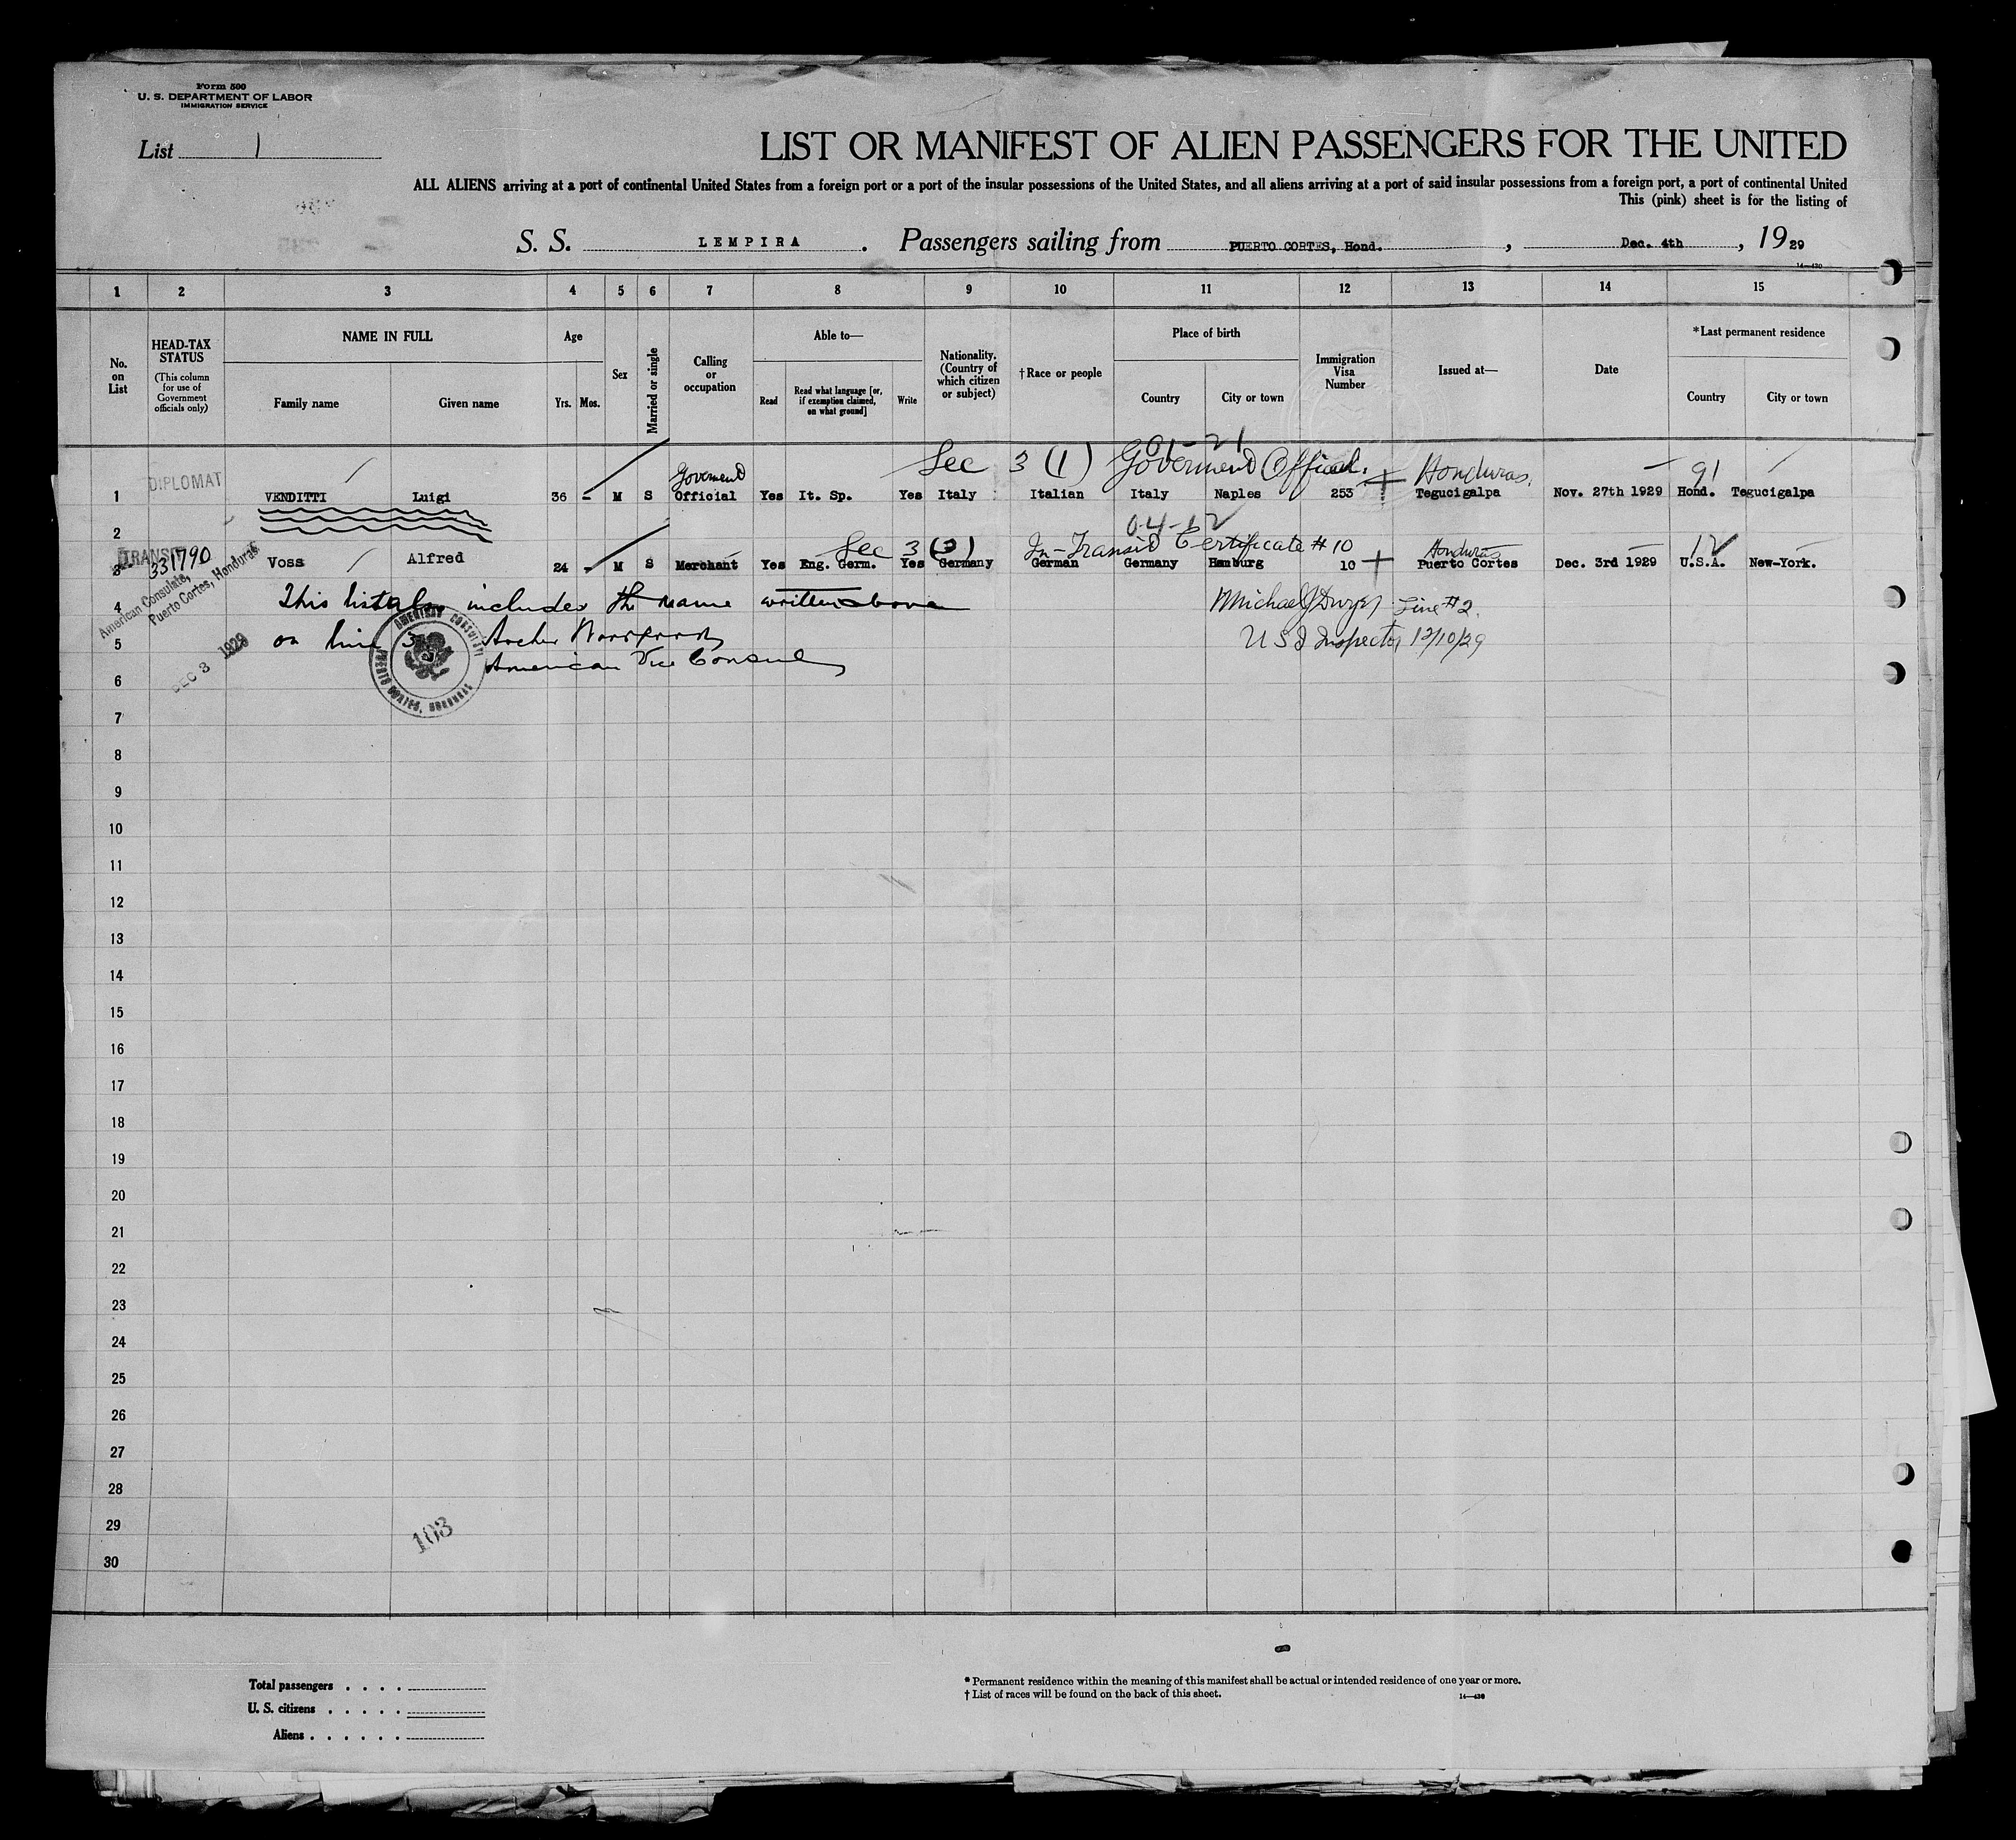 Form 500
U. S. DEPARTMENT OF LABOR
IMMIGRATION SERVICE
List 1
LIST OR MANIFEST OF ALIEN PASSENGERS FOR THE UNITED
ALL ALIENS arriving at a port of continental United States from a foreign port or a port of the insular possessions of the United States, and all aliens arriving at a port of said insular possessions from a foreign port, a port of continental United
This (pink) sheet is for the listing of
S. S. LEMPIRA. Passengers sailing from PUERTO CORTES, Hond., Dec. 4th, 1929
14-430
1 2 3 4 5 6 7 8 9 10 11 12 13 14 15
No. on List
HEAD-TAX STATUS
(This column for use of Government officials only)
NAME IN FULL
Family name Given name
Age
Yrs. Mos.
Sex
Married or single
Calling or occupation
Able to—
Read
Read what language [or, if exemption claimed, on what ground]
Write
Nationality. (Country of which citizen or subject)
†Race or people
Place of birth
Country City or town
Immigration Visa Number
Issued at—
Date
*Last permanent residence
Country City or town
Sec 3 (1) Goverment Official. Honduras. 91
DIPLOMAT
Goverment
1 VENDITTI Luigi 36 - M S Official Yes It. Sp. Yes Italy Italian Italy Naples 253 Tegucigalpa Nov. 27th 1929 Hond. Tegucigalpa
2
04-12
Sec 3 (3) In-Transit Certificate #10 Honduras 12
TRANSIT
331790
3 Voss Alfred 24 - M S Merchant Yes Eng. Germ. Yes Germany German Germany Hamburg 10 Puerto Cortes Dec. 3rd 1929 U.S.A. New-York.
American Consulate,
Puerto Cortes, Honduras.
DEC 3 1929
4 This list also includes the name written above
5 on line 3
American Vice Consul
AMERICAN CONSULATE
PUERTO CORTES, HONDURAS
Line #2.
U S I Inspector 12/10/29
6
7
8
9
10
11
12
13
14
15
16
17
18
19
20
21
22
23
24
25
26
27
28
29
30
103
Total passengers . . . .
U. S. citizens . . . . .
Aliens . . . . . .
* Permanent residence within the meaning of this manifest shall be actual or intended residence of one year or more.
† List of races will be found on the back of this sheet.
14—430